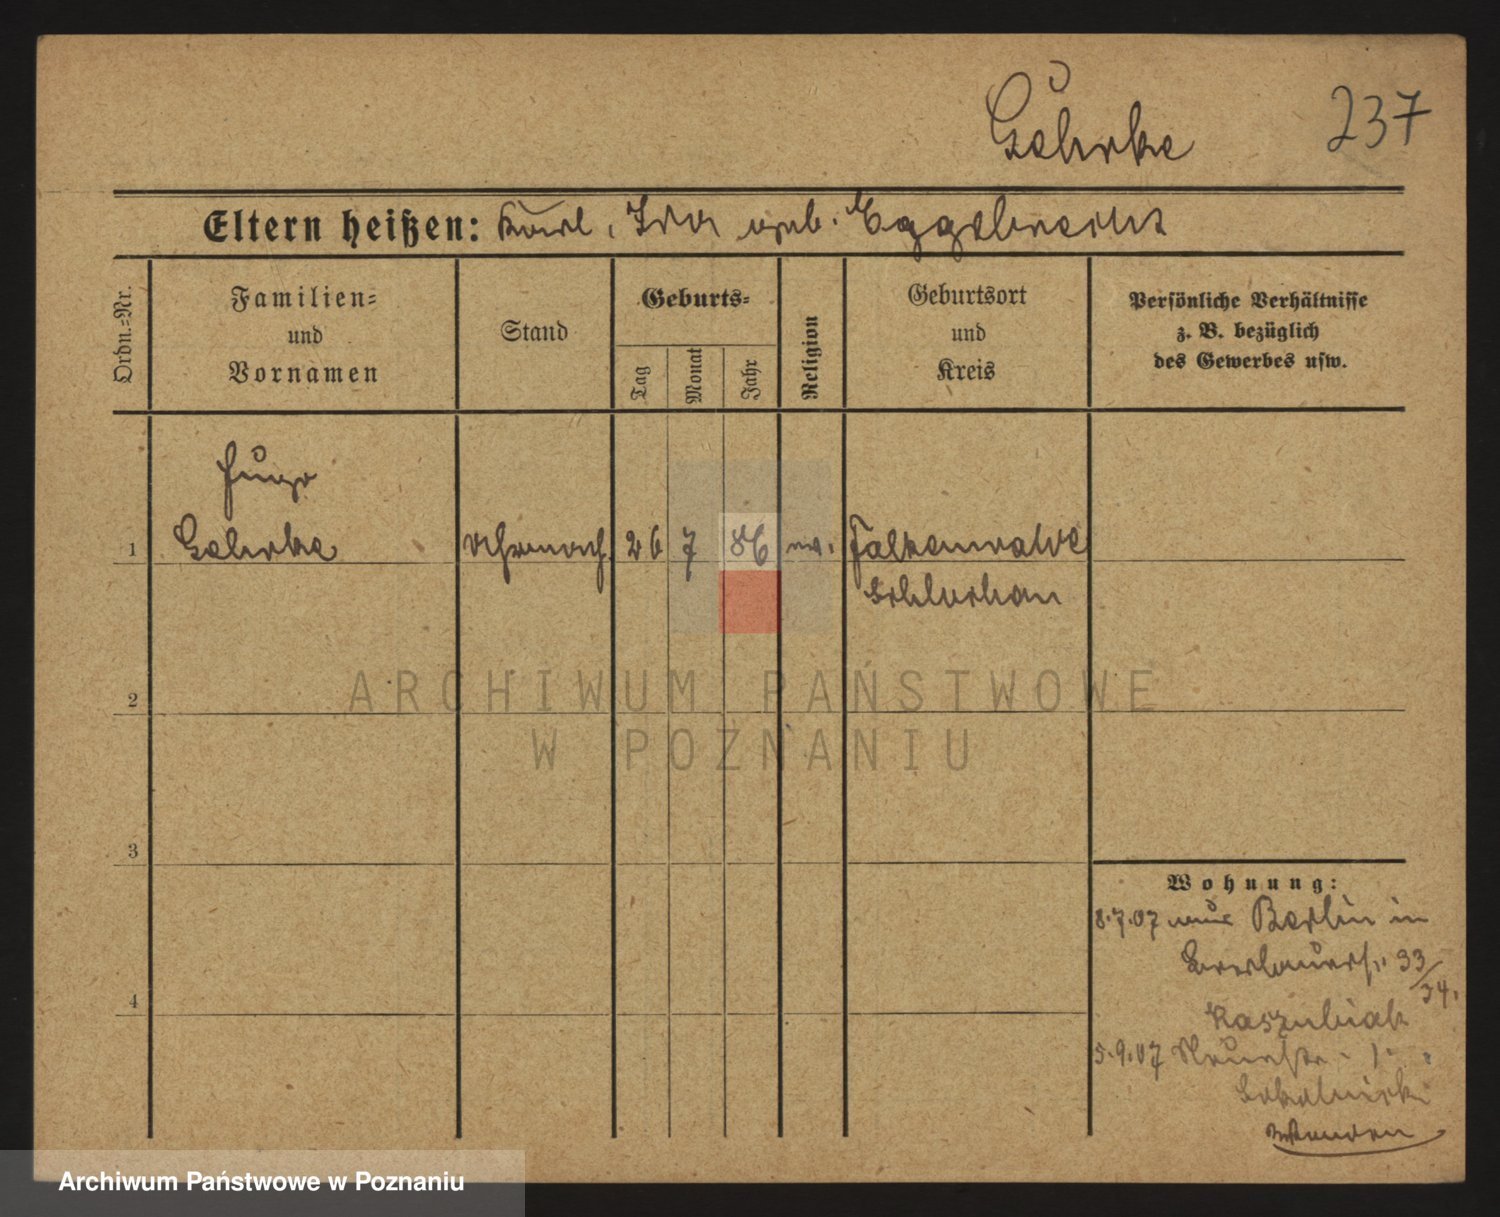 Gehrke 237
Eltern heißen: Karl, Ida geb. Eggebrecht
Ordn.=Nr.
Familien=
und
Vornamen
Stand
Geburts=
Tag
Monat
Jahr
Religion
Geburtsort
und
Kreis
Persönliche Verhältnisse
z. B. bezüglich
des Gewerbes usw.
Hugo
1 Gehrke 26 7 86 ev. Falkenwalde
2
3
4
Wohnung:
8.7.07 aus Berlin in
Breslauerstr. 33/34.
Kaszubiak
5.9.07
wenden
ARCHIWUM PAŃSTWOWE
W POZNANIU
Archiwum Państwowe w Poznaniu